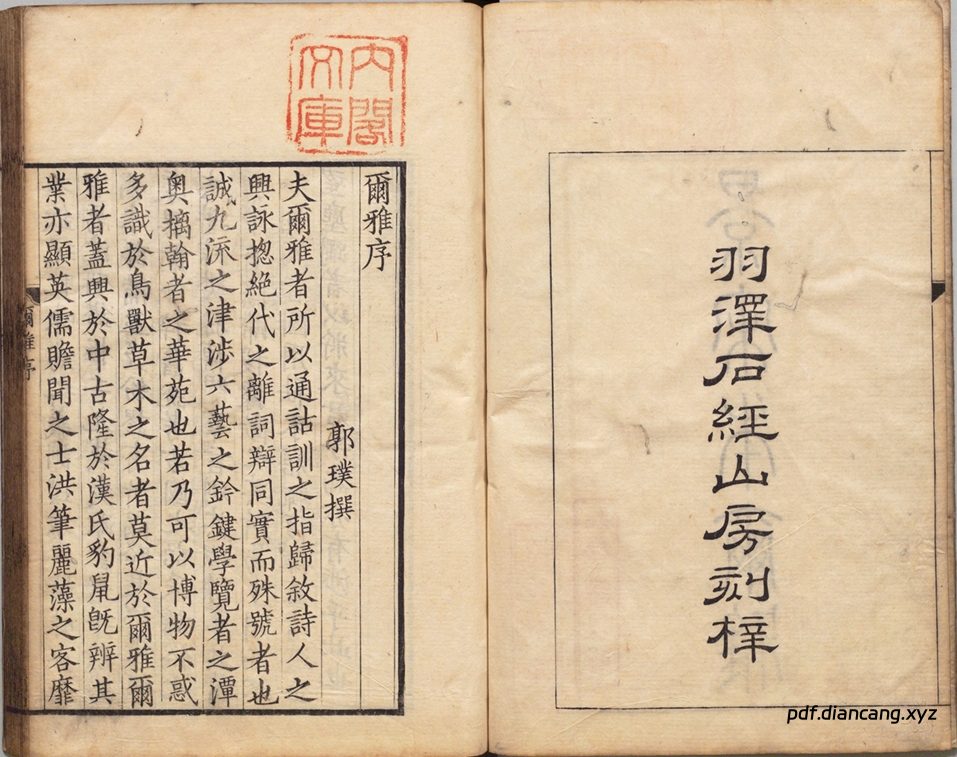 羽澤石經山房刻梓
內閣
文庫
爾雅序
郭璞撰
夫爾雅者所以通詁訓之指歸敘詩人之
興詠揔絕代之離詞辯同實而殊號者也
誠九流之津涉六藝之鈐鍵學覽者之潭
奧摛翰者之華苑也若乃可以博物不惑
多識於鳥獸草木之名者莫近於爾雅爾
雅者蓋興於中古隆於漢氏豹鼠旣辨其
業亦顯英儒贍聞之士洪筆麗藻之客靡
爾雅序
pdf.diancang.xyz